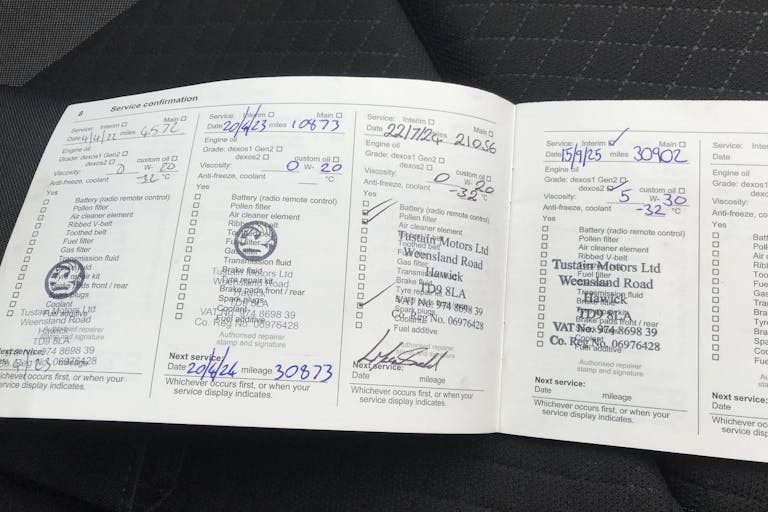 8 Service confirmation
Service: Interim Main
Date 4/4/22 miles 4572
Engine oil
Grade: dexos1 Gen2
dexos2 custom oil
Viscosity: 0 W- 20
Anti-freeze, coolant -32 °C
Yes
Battery (radio remote control)
Pollen filter
Air cleaner element
Ribbed V-belt
Toothed belt
Fuel filter
Gas filter
Transmission fluid
Coolant
Tustain Motors Ltd
Weensland Road
Hawick
TD9 8LA
974 8698 39
06976428
Authorised repairer
stamp and signature
Next service:
Date mileage
Whichever occurs first, or when your
service display indicates.
Service: Interim Main
Date 20/4/23 miles 10873
Engine oil
Grade: dexos1 Gen2
dexos2 custom oil
Viscosity: 0 W- 20
Anti-freeze, coolant °C
Yes
Battery (radio remote control)
Pollen filter
Air cleaner element
Ribbed V-belt
Fuel filter
Transmission fluid
Brake fluid
Tyre repair kit
Brake pads front / rear
Spark plugs
Coolant
Fuel additive
Tustain Motors Ltd
Weensland Road
Hawick
TD9 8LA
VAT No: 974 8698 39
Co. Reg No. 06976428
Authorised repairer
stamp and signature
Next service:
Date 20/4/24 mileage 30873
Whichever occurs first, or when your
service display indicates.
Service: Interim Main
Date 22/7/24 miles 21056
Engine oil
Grade: dexos1 Gen2
dexos2 custom oil
Viscosity: 0 W- 20
Anti-freeze, coolant -32 °C
Yes
Battery (radio remote control)
Pollen filter
Air cleaner element
Ribbed V-belt
Toothed belt
Fuel filter
Gas filter
Transmission fluid
Brake fluid
Spark plugs
Coolant
Fuel additive
Tustain Motors Ltd
Weensland Road
Hawick
TD9 8LA
VAT No: 974 8698 39
Co. Reg No. 06976428
Authorised repairer
stamp and signature
Next service:
Date mileage
Whichever occurs first, or when your
service display indicates.
Service: Interim Main
Date 15/9/25 miles 30902
Engine oil
Grade: dexos1 Gen2
dexos2 custom oil
Viscosity: 5 W- 30
Anti-freeze, coolant -32 °C
Yes
Battery (radio remote control)
Pollen filter
Air cleaner element
Ribbed V-belt
Toothed belt
Fuel filter
Transmission fluid
Brake fluid
Brake pads front / rear
Spark plugs
Fuel additive
Tustain Motors Ltd
Weensland Road
Hawick
TD9 8LA
VAT No: 974 8698 39
Co. Reg No. 06976428
Authorised repairer
stamp and signature
Next service:
Date mileage
Whichever occurs first, or when your
service display indicates.
Service:
Date
Engine oil
Grade: dexos1
Viscosity:
Anti-freeze, co
Yes
Next service:
Date
Whichever oc
service disp